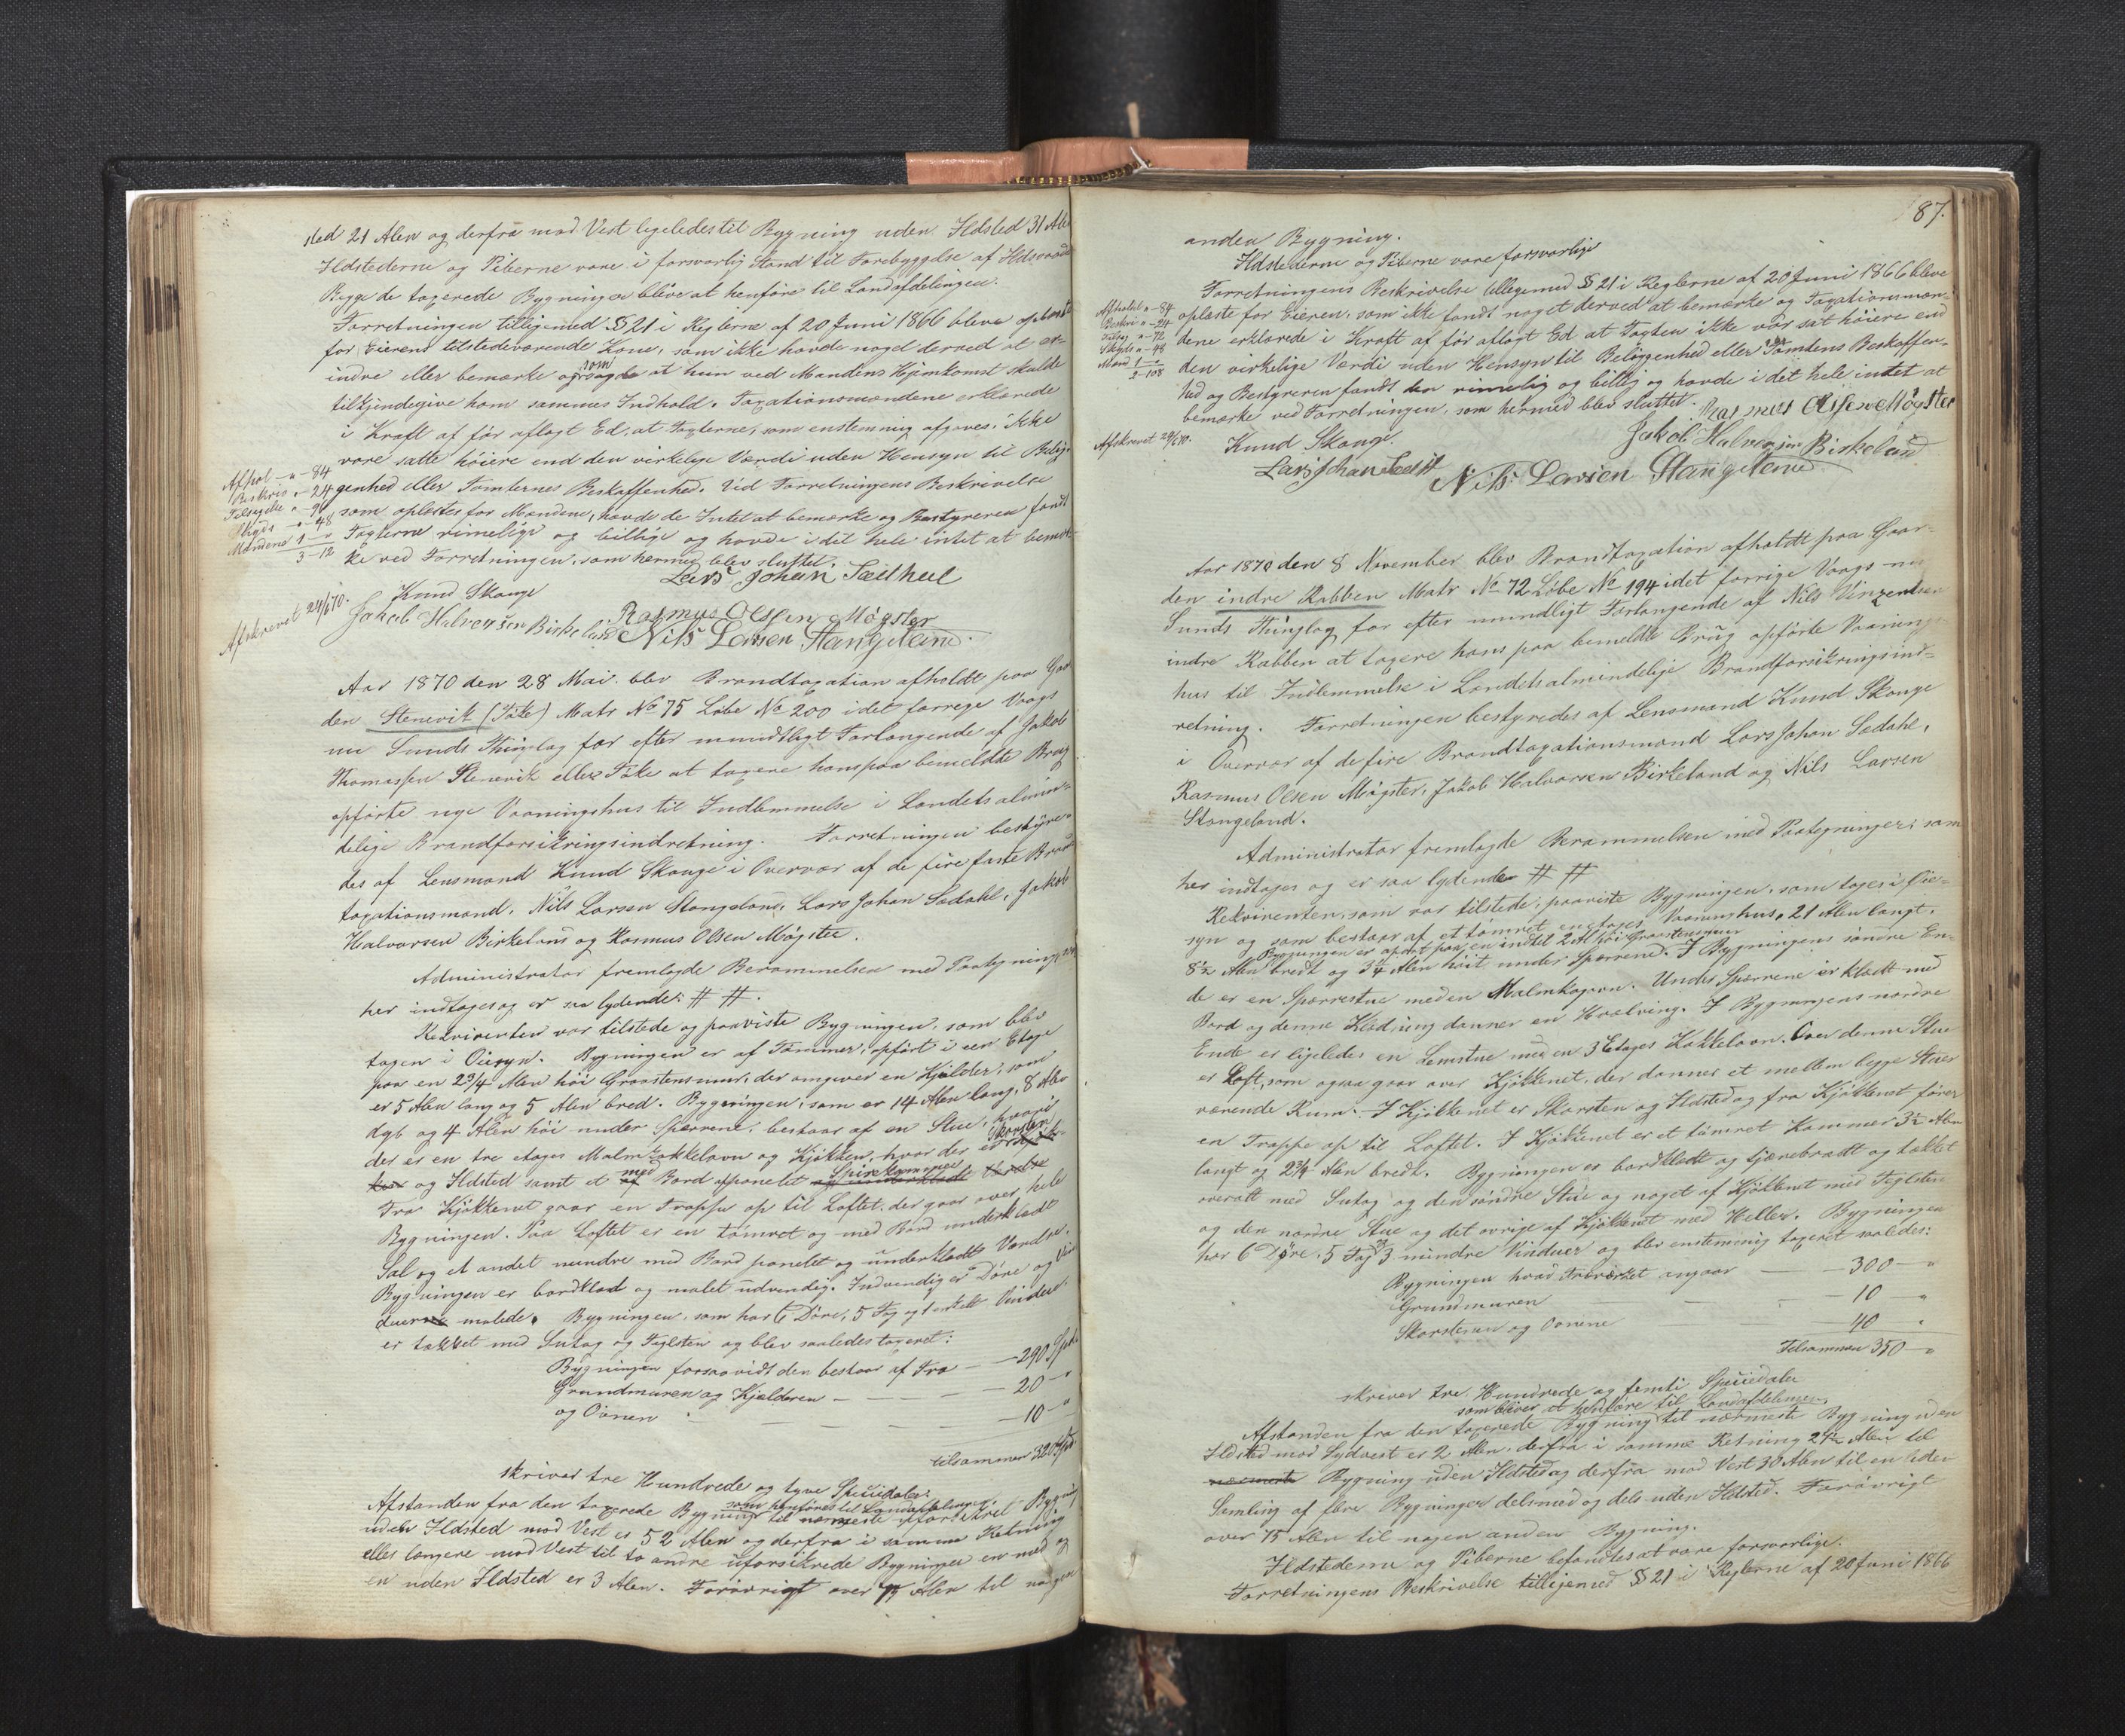 sted 21 Alen og derfra mod Vest ligeledes til Bygning uden Ildsted 31 Alen
Ildstederne og Piberne vare i forsvarlig Stand til Forebyggelse af Ildsvaade
Begge de taxerede Bygninger bleve at henføre til Landafdelingen.
Forretningen tilligemed §§ 21 i Reglerne af 20 Juni 1866 bleve oplæste
for Eierens tilstedeværende Kone, som ikke havde noget derved at er-
indre eller bemærke og som sagde at hun ved Mandens Hjemkomst skulde
tilkjendegive ham sammes Indhold. Taxationsmændene erklærede
i Kraft af før aflagt Ed, at Taxterne, som enstemmig afgaves, ikke
vare satte høiere end den virkelige Værdi uden Hensyn til Belig-
genhed eller Tomternes Beskaffenhed. Ved Forretningens Beskrivelse
som oplæstes for Mændene, havde de Intet at bemærke og Bestyreren fandt
Taxterne rimelige og billige og havde i det hele intet at bemær-
ke ved Forretningen, som hermed blev sluttet.
Afhol — " – 84
Beskriv " – 24
Tilsigelse " – 96
Skyds — " – 48
Mændene 1 – "
3 – 12
Knud Skauge
Lars Johan
Afskrevet 24/6 70.
Jakob Halvorsen Birkeland
Rasmus Olsen Møgster
Nils Larsen Stangeland.
Aar 1870 den 28 Mai blev Brandtaxation afholdt paa Gaar
den Stenevik (Toke) Matr No 75 Løbe No 200 i det forrige Vaags
nu Sunds Thinglag for efter mundtligt Forlangende af Jakob
Thomassen Stenevik eller Toke at taxere hans paa bemeldte Brug
opførte nye Vaaningshus til Indlemmelse i Landets almin-
delige Brandforsikringsindretning. Forretningen bestyre-
des af Lensmand Knud Skauge i Overvær af de fire faste Brand
taxationsmænd, Nils Larsen Stangeland, Lars Johan Sædahl, Jakob
Halvorsen Birkeland og Rasmus Olsen Møgster.
Administrator fremlagde Berammelsen med Paategninger, som
her indtages og er saa lydende: # #.
Rekvirenten var tilstede og paaviste Bygningen, som blev
tagen i Øiesyn. Bygningen er af Tømmer, opført i een Etage
paa en 2 3/4 Alen høi Graastensmur, der omgiver en Kjælder, som
er 5 Alen lang og 5 Alen bred. Bygningen, som er 14 Alen lang, 8 Alen
dyb og 4 Alen høi under Sperrene, bestaar af en Stue, hvori
der er en tre etages Malmkakkelovn og Kjøkken, hvor der er Skorsten
og Ildsted samt et med Bord afpanelet Spisekammer
Fra Kjøkkenet gaar en Trappe op til Loftet, der gaar over hele
Bygningen. Paa Loftet er en tømret og med Bord underklædt
Sal og et andet mindre med Bord panelet og underklædt Værelse.
Bygningen er bordklæd og malet udvendig. Indvendig er Døre og Vin
duerne malede. Bygningen, som har 6 Døre, 5 Fag og 1 enkelt Vindue
er tækket med Sutag og Teglsten og blev saaledes taxeret:
Bygningen forsaavidt den bestaar af Træ — — 290 Spd.
Grundmuren og Kjælderen — — — — 20 — "
og Ovnen — — — — 10 — "
tilsammen 320 Spd.
skriver tre Hundrede og tyve Speciedaler
som henføres til Landafdelingen
Afstanden fra den taxerede Bygning til nærmeste uforsikret Bygning
uden Ildsted mod Vest er 52 Alen og derfra i samme Retning
eller længere mod Vest til to andre uforsikrede Bygninger en med og
en uden Ildsted er 3 Alen. Forøvrigt over 75 Alen til nogen
87.
anden Bygning.
Ildstederne og Piberne vare forsvarlige
Forretningens Beskrivelse tilligemed §§ 21 i Reglerne af 20 Juni 1866 bleve
oplæste for Eieren, som ikke fandt noget derved at bemærke og Taxationsmæn-
dene erklærede i Kraft af før aflagt Ed at Taxten ikke var sat høiere end
den virkelige Værdi uden Hensyn til Beliggenhed eller Tomtens Beskaffen-
hed og Bestyreren fandt den rimelig og billig og havde i det hele intet at
bemærke ved Forretningen, som hermed blev sluttet.
Afholdel " – 84
Beskriv " – 24
Tilsig " – 72
Skyds " – 48
Mænd 1 – "
2 – 108
Rasmus Olsen Møgster
Afskrevet 24/6 70.
Knud Skauge.
Jakob Halvorsen Birkeland
Lars Johan
Nils Larsen Stangeland
Aar 1870 den 8 November blev Brandtaxation afholdt paa Gaar-
den indre Rabben Matr No 72 Løbe No 194 i det forrige Vaags nu
Sunds Thinglag for efter mundtligt Forlangende af Nils Vinzentsen
indre Rabben at taxere hans paa bemeldte Brug opførte Vaanings-
hus til Indlemmelse i Landets almindelige Brandforsikringsind-
retning. Forretningen bestyredes af Lensmand Knud Skauge
i Overvær af de fire Brandtaxationsmænd Lars Johan Sedahl,
Rasmus Olsen Møgster, Jakob Halvorsen Birkeland og Nils Larsen
Stangeland.
Administrator fremlagde Berammelsen med Paategninger, som
her indtages og er saa lydende # #
Rekvirenten, som var tilstede, paaviste Bygningen, som toges i Øie-
syn og som bestaar af et tømret enetages Vaaningshus, 21 Alen langt,
Bygningen er opført paa en indtil 2 Al høi Graastensmur
8 1/2 Alen bredt og 3 3/4 Alen høit under Sperrene. I Bygningens søndre En-
de er en Sperrestue med en Malmkagovn. Under Sperrene er klædt med
Bord og denne Klædning danner en Hvælving. I Bygningens nordre
Ende er ligeledes en Lemstue med en 3 Etages Kakkelovn. Over denne Stue
er Loft, som ogsaa gaar over Kjøkkenet, der danner et mellem begge Stuer
værende Rum. I Kjøkkenet er Skorsten og Ildsted og fra Kjøkkenet fører
en Trappe op til Loftet. I Kjøkkenet er et tømret Kammer 3 1/2 Alen
langt og 2 3/4 Alen bredt. Bygningen er bordklædt og tjærebrædt og tækket
overalt med Sutag og den søndre Stue og noget af Kjøkkenet med Teglsten
og den nordre Stue og det øvrige af Kjøkkenet med Heller. Bygningen
har 6 Døre, 5 Fag og 3 mindre Vinduer og blev enstemmig taxeret saaledes:
Bygningen hvad Træværket angaar — — 300 — "
Grundmuren — — — 10 — "
Skorstenen og Ovnene — — 40 "
Tilsammen 350 — "
skriver tre Hundrede og femti Speciedaler
som bliver at henføre til Landafdelingen
Afstanden fra den taxerede Bygning til nærmeste Bygning uden
Ildsted mod Sydvest er 2 Alen, derfra i samme Retning 21 1/2 Alen til
Bygning uden Ildsted og derfra mod Vest 30 Alen til en liden
Samling af flere Bygninger dels med og dels uden Ildsted. Forøvrigt
over 75 Alen til nogen anden Bygning.
Ildstederne og Piberne befandtes at være forsvarlige.
Forretningens Beskrivelse tilligemed §§ 21 i Reglerne af 20 Juni 1866